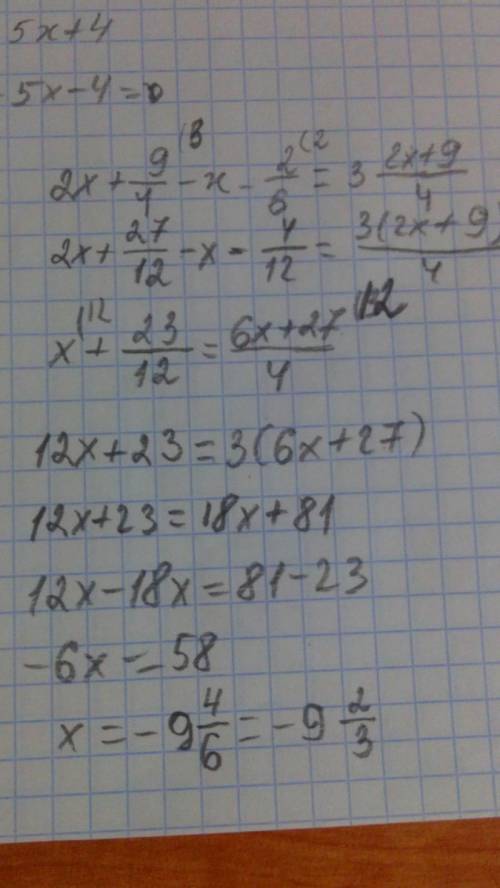 5x+4
5x-4=0
2x+9/4(3-x-2/6(2=3 2x+9/4
2x+27/12-x-4/12=3(2x+9)/4
x(12+23/12=6x+27/4(12
12x+23=3(6x+27)
12x+23=18x+81
12x-18x=81-23
-6x=58
x=-9 4/6=-9 2/3